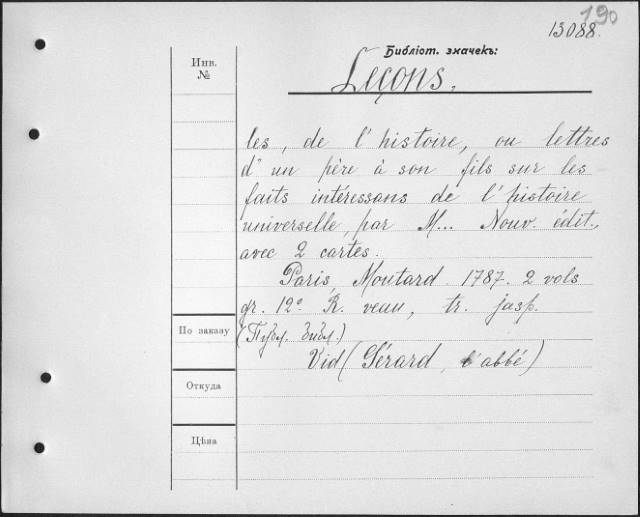 190
13088.
Библіот. значекъ:
Инв.
№
Leçons,
les, de l'histoire, ou lettres
d'un père à son fils sur les
faits intéressans de l'histoire
universelle, par M... Nouv. édit.,
avec 2 cartes.
Paris, Moutard. 1787. 2 vols
gr. 12° R. veau, tr. jasp.
По заказу
(Публ. библ.)
Vid (Gérard, l'abbé)
Откуда
Цѣна